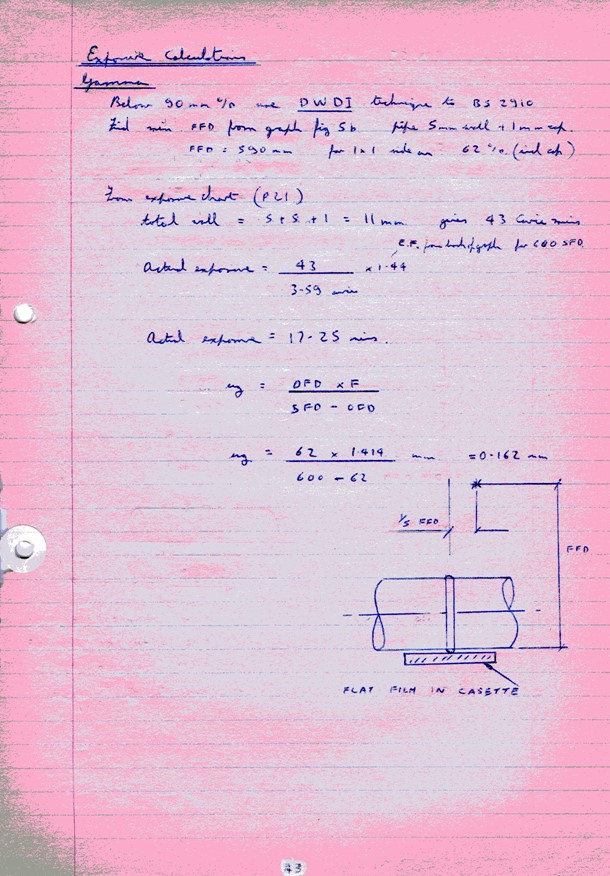 Exposure Calculations
Gamma
Below 90 mm % use DWDI technique to BS 2910
Find min FFD from graph fig 5b pipe 5mm wall + 1mm cap.
FFD = 590 mm for 1x1 side on 62 % (incl cap)
From exposure chart (P21)
total wall = 5 + 5 + 1 = 11 mm gives 43 Curie mins
E.F. from back of graph for 600 SFD
Actual exposure = 43 x 1.44
3.59 curie
Actual exposure = 17.25 mins.
ug = OFD x F
SFD - OFD
ug = 62 x 1.414 mm = 0.162 mm
600 - 62
1/5 FFD
FFD
FLAT FILM IN CASETTE
43